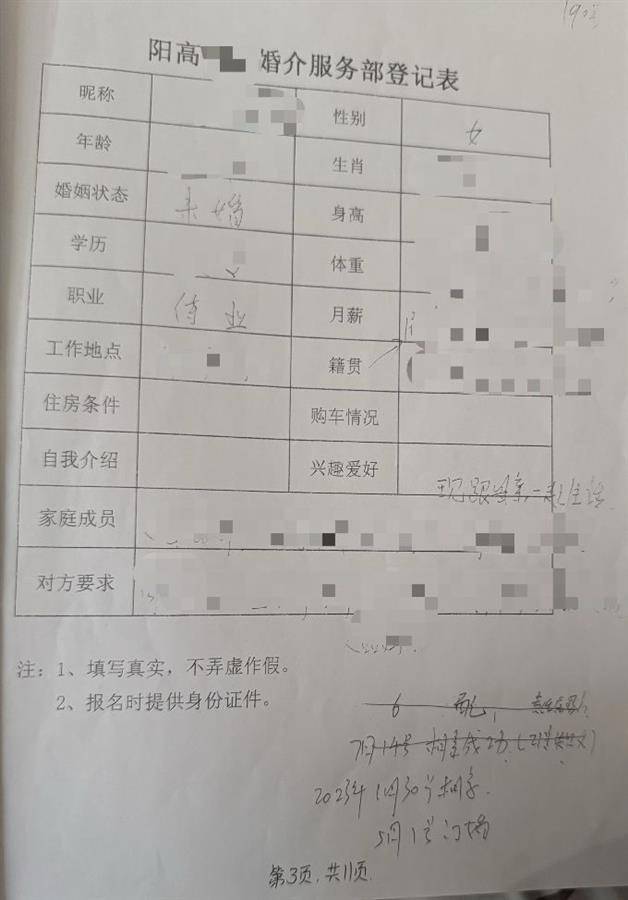 阳高 婚介服务部登记表
昵称 性别 女
年龄 生肖
婚姻状态 未婚 身高
学历 体重
职业 待业 月薪
工作地点 籍贯
住房条件 购车情况
自我介绍 兴趣爱好
现跟母亲一起生活
家庭成员
对方要求
注：1、填写真实，不弄虚作假。
2、报名时提供身份证件。
6
7月14号相亲成功
2023年1月30号相亲.
5月1号订婚
第3页,共11页